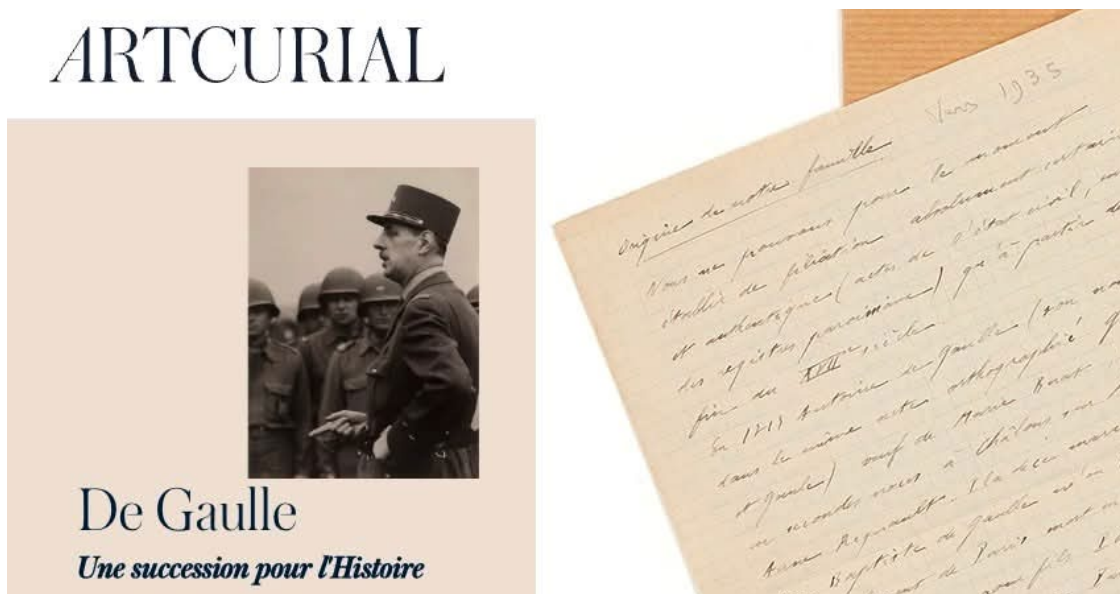 ARTCURIAL
De Gaulle
Une succession pour l'Histoire
Vers 1935
Origine de notre famille
Nous ne pouvons pour le moment
établir de filiation absolument certaine
et authentique (actes de l'état civil, ou
des registres paroissiaux) qu'à partir de
fin du siècle
En 1719 Antoine de Gaulle (son nom
dans le même acte orthographié
et Gaule) veuf de Marie
en secondes noces à Châlons sur
Anne Regnault. Il a
Baptiste de Gaulle
de Paris